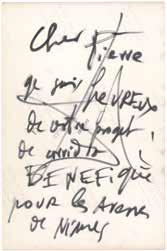 Cher Pierre
je suis HEUREUX
de votre projet
de corrida !
BENEFIQUE
POUR les Arenes
de Nimes